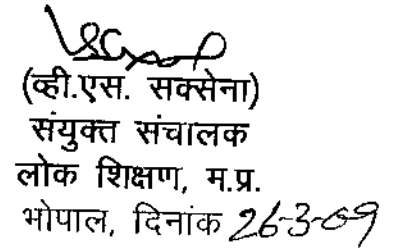 (व्ही.एस. सक्सेना)
संयुक्त संचालक
लोक शिक्षण, म.प्र.
भोपाल, दिनांक 26-3-09